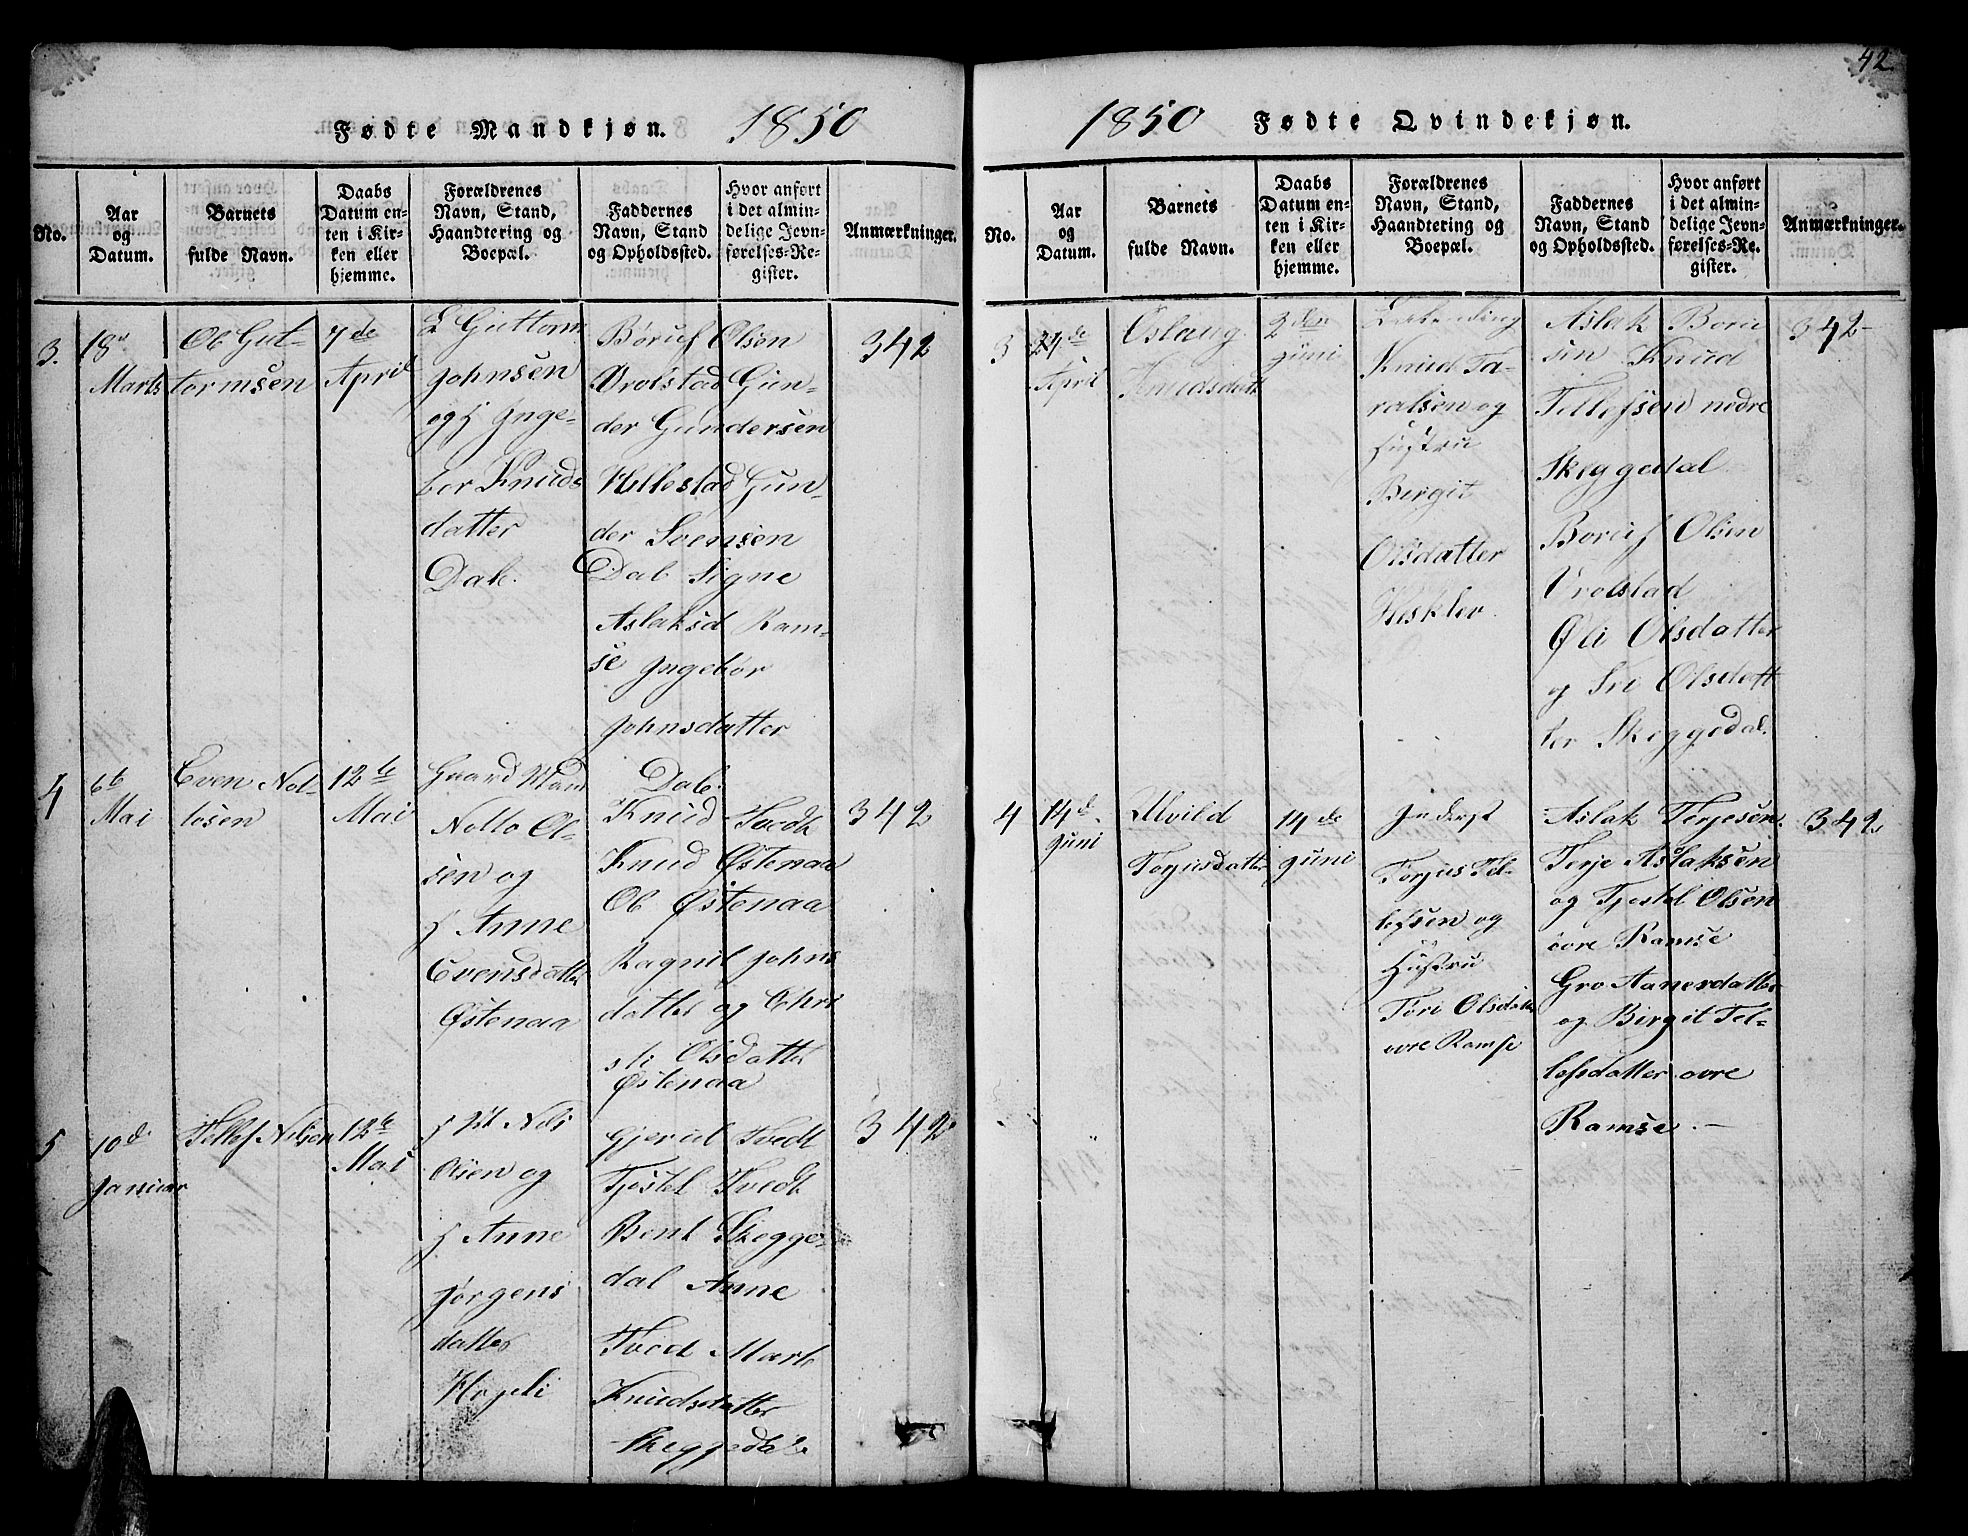 42
Fødte Mandkjøn. 1850
No.
Aar
og
Datum.
Barnets
fulde Navn.
Daabs
Datum en-
ten i Kir-
ken eller
hjemme.
Forældrenes
Navn, Stand,
Haandtering og
Boepæl.
Faddernes
Navn, Stand
og Opholdssted.
Hvor anført
i det almin-
delige Jevn-
førelses-Re-
gister.
Anmærkninger.
3.
18de
Marts
Ole Gut-
tormsen
7de
April
Guttorm
Johnsen
og H Inge-
bor Knuds
datter
Dale.
Børuf Olsen
Vrolstad Gun-
der Gundersen
Hillestad Gun-
der Svensen
Dale Signe
Aslaksd Ram-
se Ingebor
Johnsdatter
Dale.
342
4
6te
Mai
Even Nol-
tesen
12te
Mai
Gaard Mand
Nolte Ol-
sen og
H Anne
Evensdatter
Østenaa
Knud Tvedt
Knud Østenaa
Ole Østenaa
Ragnil Johns
datter og Chri
sti Olsdatter
Østenaa
342
5
10de
Januar
Tellef Nilsen
12te
Mai
Nils
Olsen og
H Anne
Jørgens
datter
Hogeli
Gjerul Tvedt
Tjostel Tvedt
Bent Skegge-
dal Anne
Tved Marte
Knudsdatter
Skeggedal.
342
1850 Fødte Qvindekjøn.
No.
Aar
og
Datum.
Barnets
fulde Navn.
Daabs
Datum en-
ten i Kir-
ken eller
hjemme.
Forældrenes
Navn, Stand,
Haandtering og
Boepæl.
Faddernes
Navn, Stand
og Opholdssted.
Hvor anført
i det almin-
delige Jevn-
førelses-Re-
gister.
Anmærkninger.
3
de
April
Oslaug
Knudsdatt
2den
Juni
Knud Ta-
ralsen og
Hustru
Birgit
Olsdatter
Hesklev.
Aslak Boru
sen Knud
Tellefsen nedre
Skeggedal
Boruf Olsen
Vrolstad
Øli Olsdatter
og Siri Olsdatt
ter Skeggedal.
342
4
14de
Juni
Alvild
Torjusdatter
14de
Juni
Inderst
Torjus Tel-
lefsen og
Hustru
Tori Olsdatter
øvre Ramse
Aslak Terjesen
Terje Aslaksen
og Tjostel Olsen
øvre Ramse
Gro Aanerdatter
og Birgit Tel-
lefsdatter øvre
Ramse.
342